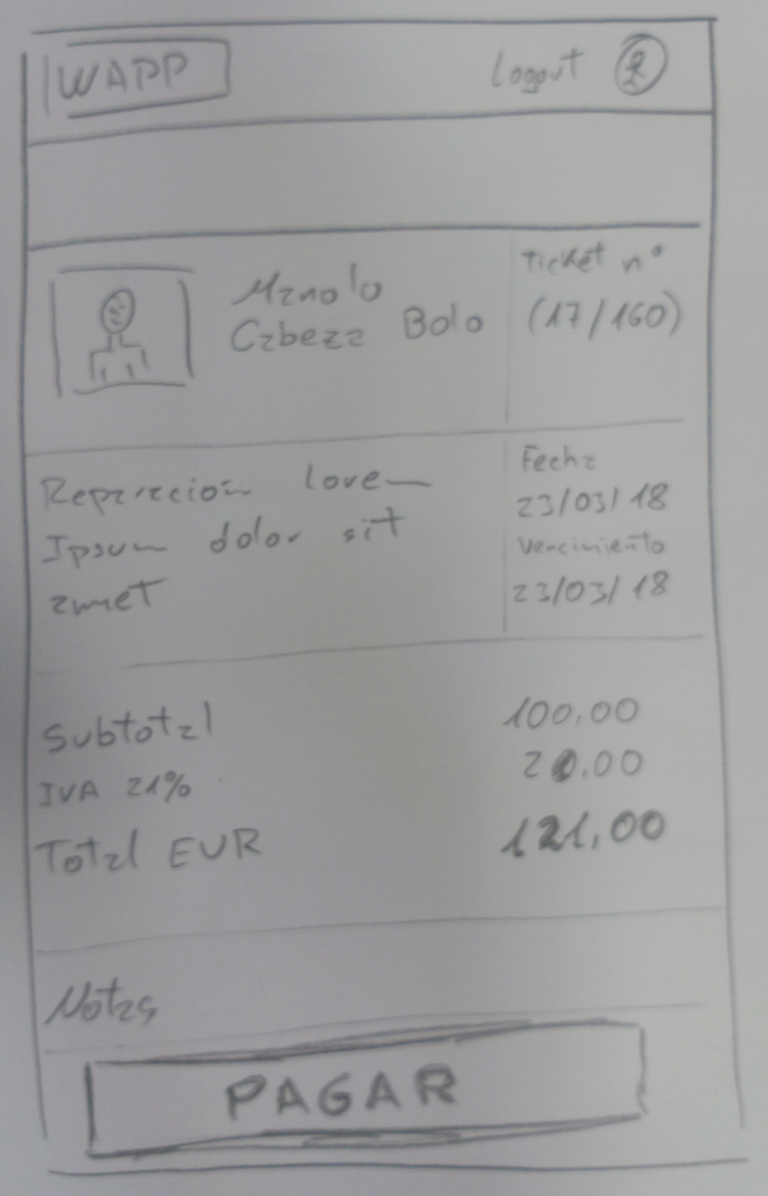 WAPP
Logout
Manolo
Cabeza Bolo
Ticket nº
(17/160)
Reparacion lorem
Ipsum dolor sit
amet
Fecha
23/03/18
Vencimiento
23/03/18
Subtotal 100,00
IVA 21% 21.00
Total EUR 121,00
Notas
PAGAR